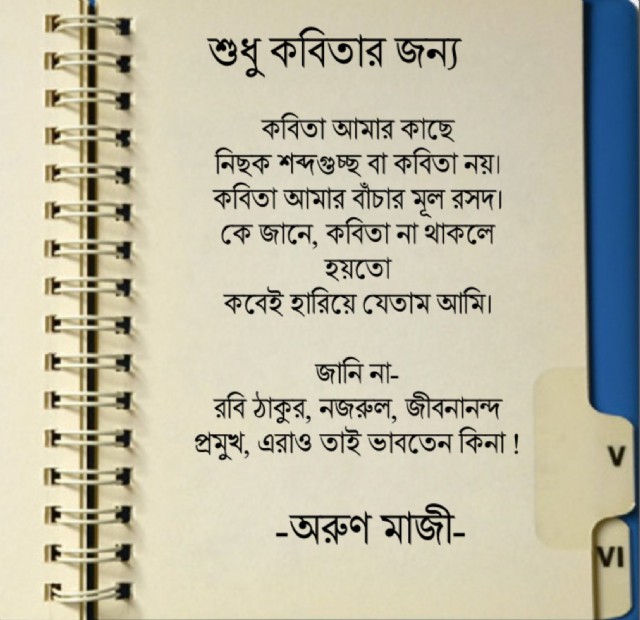 শুধু কবিতার জন্য
কবিতা আমার কাছে
নিছক শব্দগুচ্ছ বা কবিতা নয়।
কবিতা আমার বাঁচার মূল রসদ।
কে জানে, কবিতা না থাকলে
হয়তো
কবেই হারিয়ে যেতাম আমি।
জানি না-
রবি ঠাকুর, নজরুল, জীবনানন্দ
প্রমুখ, এরাও তাই ভাবতেন কিনা !
-অরুণ মাজী-
V
VI